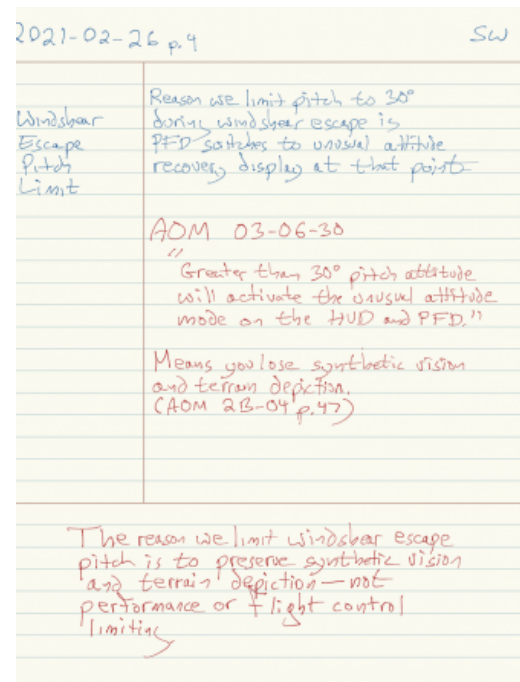 2021-02-26 p.4
SW
Windshear
Escape
Pitch
Limit
Reason we limit pitch to 30°
during windshear escape is
PFD switches to unusual attitude
recovery display at that point
AOM 03-06-30
"
Greater than 30° pitch attitude
will activate the unusual attitude
mode on the HUD and PFD."
Means you lose synthetic vision
and terrain depiction.
(AOM 2B-04 p.47)
The reason we limit windshear escape
pitch is to preserve synthetic vision
and terrain depiction — not
performance or flight control
limiting